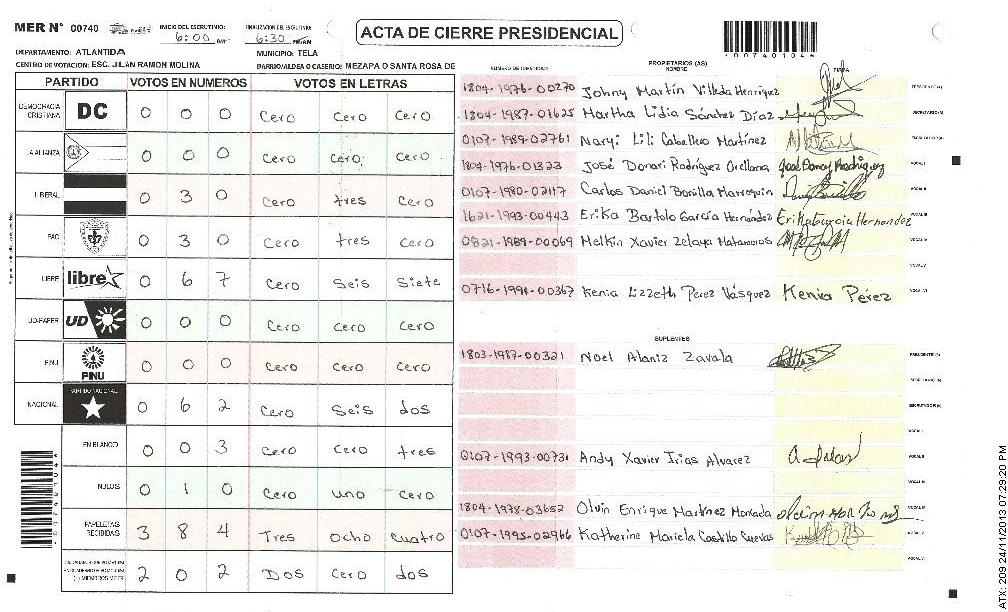 MER N° 00740
INICIO DEL ESCRUTINIO:
6:00
FINALIZACION DEL ESCRUTINIO:
6:30 PM/AM
ACTA DE CIERRE PRESIDENCIAL
*00740104*
DEPARTAMENTO: ATLANTIDA
MUNICIPIO: TELA
CENTRO DE VOTACION: ESC. JILAN RAMON MOLINA
BARRIO/ALDEA O CASERIO: MEZAPA O SANTA ROSA DE
PARTIDO VOTOS EN NUMEROS VOTOS EN LETRAS
DEMOCRACIA CRISTIANA DC 0 0 0 Cero Cero Cero
LA ALIANZA 0 0 0 Cero Cero Cero
LIBERAL 0 3 0 Cero tres Cero
PAC 0 3 0 Cero tres Cero
LIBRE libre 0 6 7 Cero Seis Siete
UD-FAPER UD 0 0 0 Cero Cero Cero
PINU PINU 0 0 0 Cero Cero Cero
NACIONAL PARTIDO NACIONAL 0 6 2 Cero Seis dos
EN BLANCO 0 0 3 Cero Cero tres
NULOS 0 1 0 Cero uno Cero
PAPELETAS RECIBIDAS 3 8 4 Tres Ocho Cuatro
(+) MIEMBROS MER 2 0 2 Dos Cero dos
NUMERO DE IDENTIDAD
PROPIETARIOS (AS)
NOMBRE
FIRMA
1804-1976-00270 Johny Martín Villeda Henriquez PRESIDENTE(A)
1804-1987-01625 Martha Lidia Sánchez Díaz SECRETARIO(A)
0107-1989-02761 Naryi Lili Caballero Martínez
1804-1976-01323 José Donari Rodríguez Orellana VOCAL I
0107-1980-02117 Carlos Daniel Bonilla Marroquin VOCAL II
1621-1993-00443 Erika Bartolo García Hernández Erika Garcia Hernandez VOCAL III
0821-1989-00069 Melkin Xavier Zelaya Matamoros VOCAL IV
VOCAL V
0716-1991-00367 Kenia Lizzeth Perez Vásquez Kenia Pérez VOCAL VI
SUPLENTES
1803-1987-00321 Noel Alaniz Zavala PRESIDENTE (A)
SECRETARIO (A)
ESCRUTADOR (A)
VOCAL I
0107-1993-00731 Andy Xavier Irias Alvarez VOCAL II
VOCAL III
1804-1938-03652 Olvin Enrique Martínez Moncada VOCAL IV
0107-1995-02966 Katherine Mariela Castillo Cuevas VOCAL V
VOCAL VI
ATX: 209 24/11/2013 07:29:20 PM